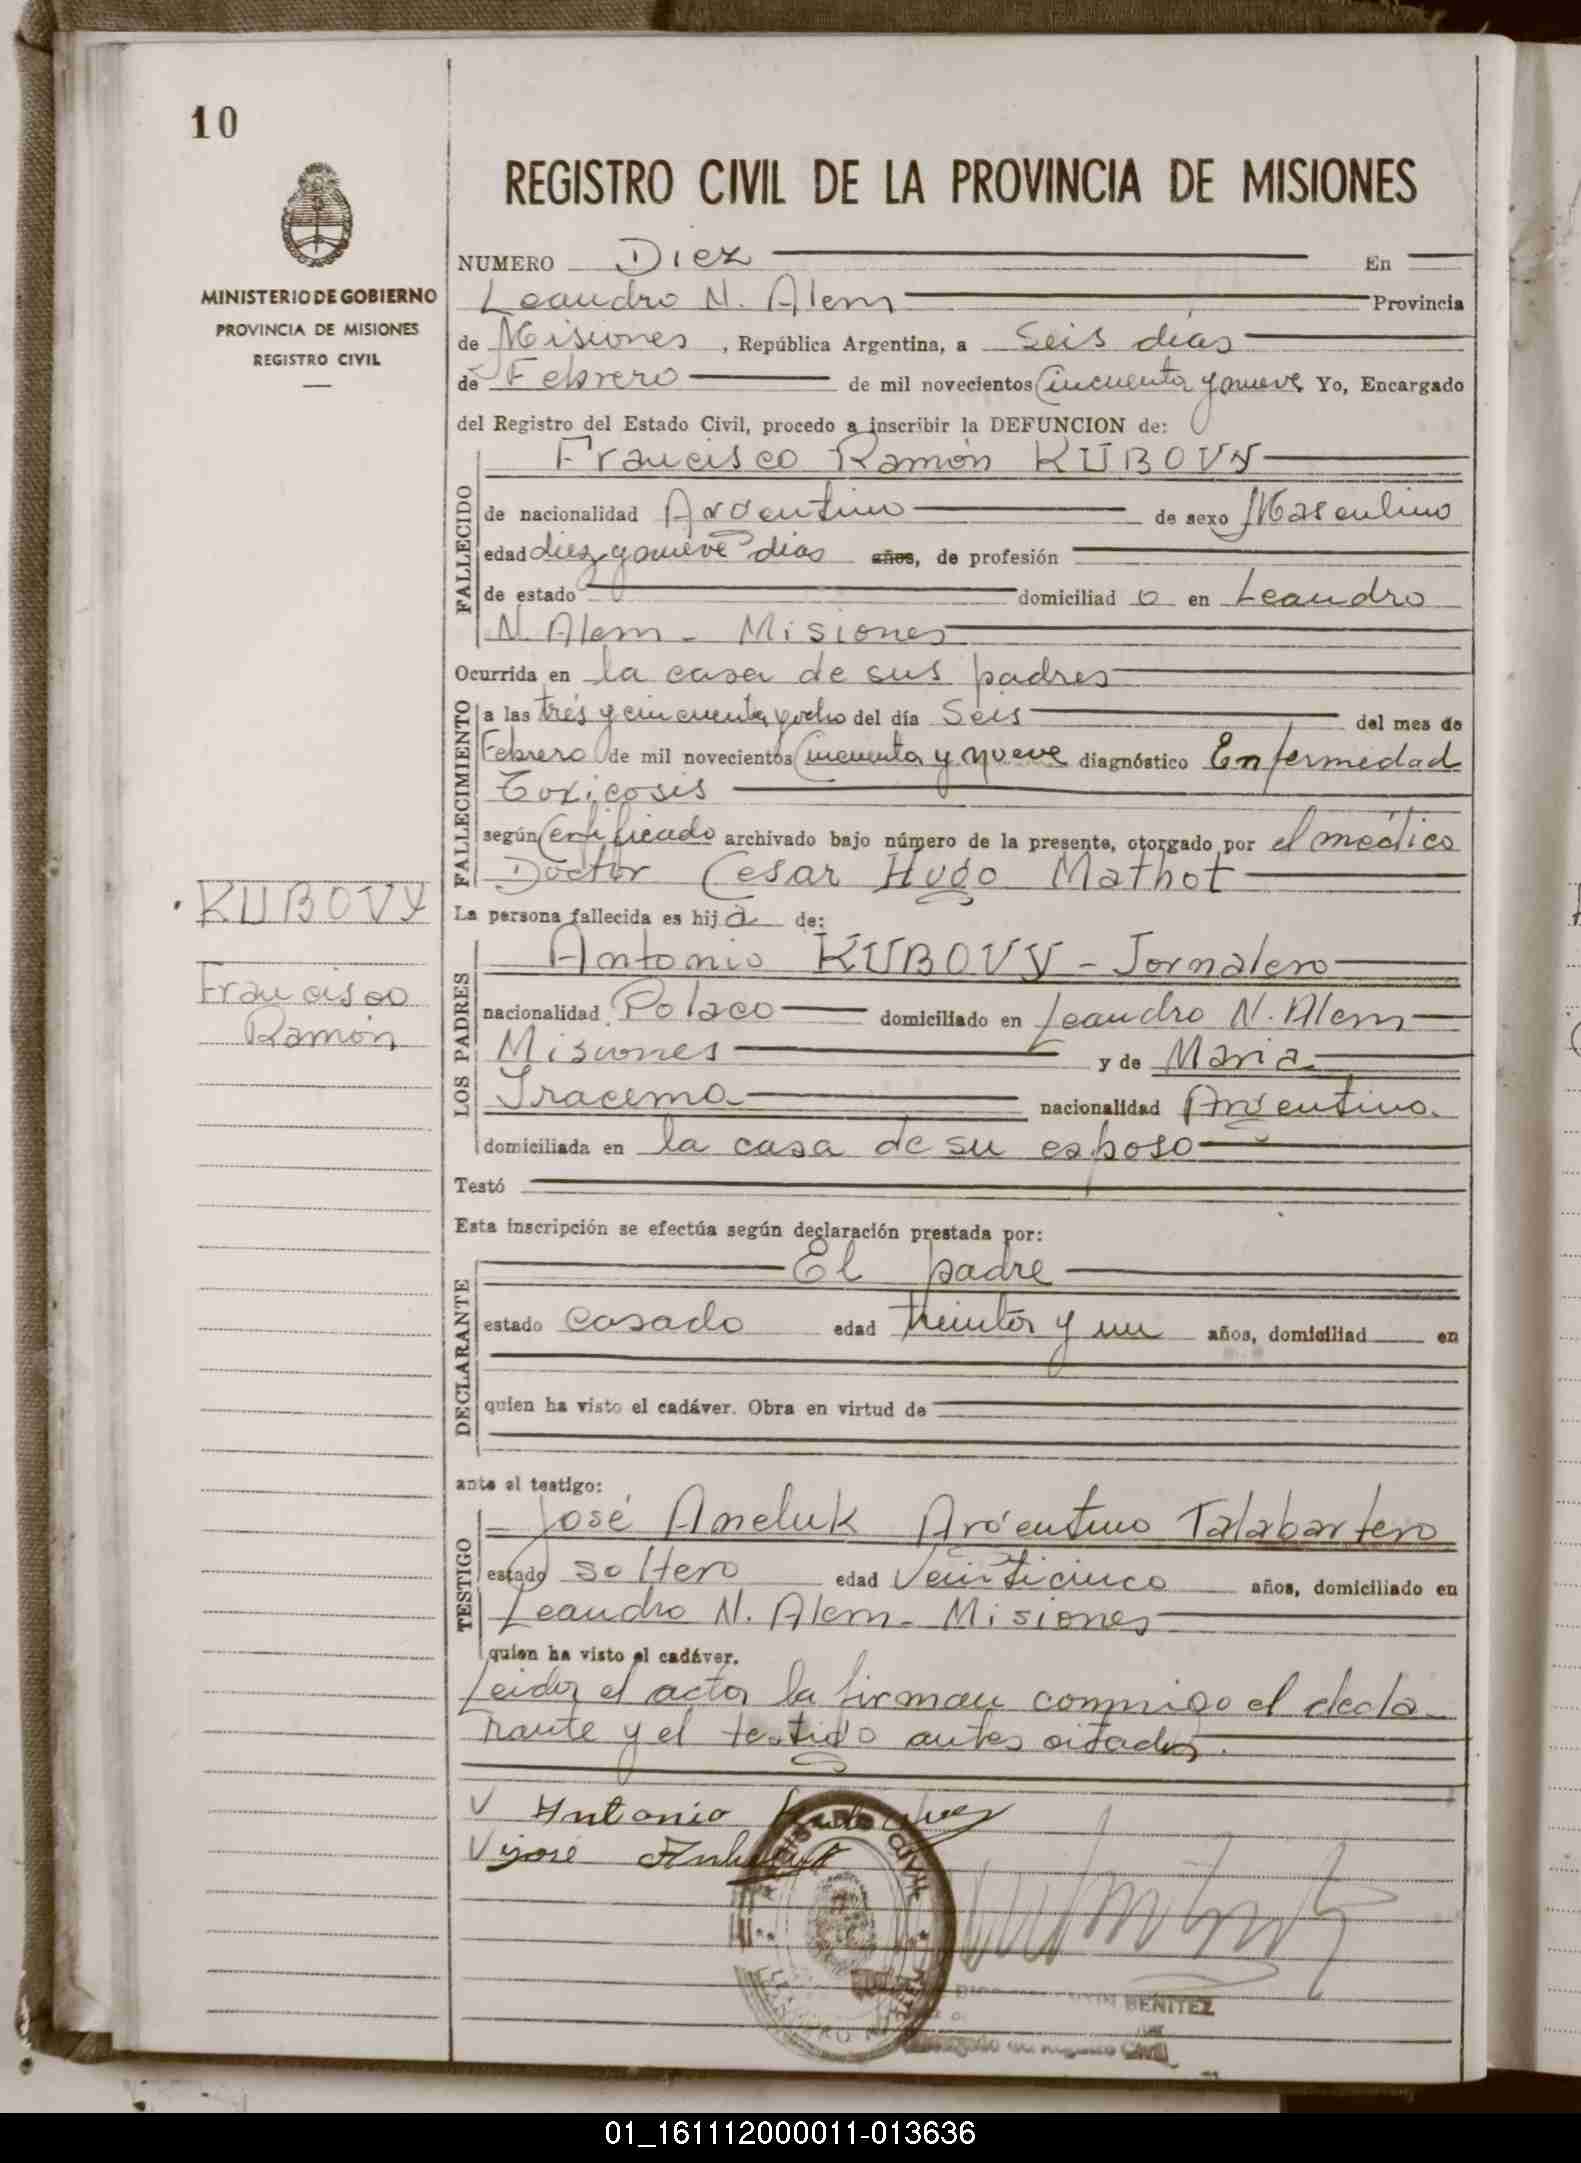 10
REGISTRO CIVIL DE LA PROVINCIA DE MISIONES
MINISTERIO DE GOBIERNO
PROVINCIA DE MISIONES
REGISTRO CIVIL
NUMERO Diez En
Leandro N. Alem Provincia
de Misiones, República Argentina, a Seis días
de Febrero de mil novecientos Cincuenta y nueve Yo, Encargado
del Registro del Estado Civil, procedo a inscribir la DEFUNCION de:
Francisco Ramón KUBOVY
FALLECIDO
de nacionalidad Argentino de sexo Masculino
edad diez y nueve días años, de profesión
de estado domiciliad o en Leandro
N. Alem - Misiones
Ocurrida en la casa de sus padres
FALLECIMIENTO
a las tres y cincuenta y ocho del día Seis del mes de
Febrero de mil novecientos Cincuenta y nueve diagnóstico Enfermedad
Toxicosis
según Certificado archivado bajo número de la presente, otorgado por el médico
Doctor Cesar Hugo Mathot
KUBOVY
Francisco
Ramón
La persona fallecida es hij a de:
LOS PADRES
Antonio KUBOVY - Jornalero
nacionalidad Polaco domiciliado en Leandro N. Alem
Misiones y de Maria
Iracema nacionalidad Argentina.
domiciliada en la casa de su esposo
Testó
Esta inscripción se efectúa según declaración prestada por:
DECLARANTE
El padre
estado casado edad treinta y un años, domiciliad en
quien ha visto el cadáver. Obra en virtud de
ante el testigo:
TESTIGO
José Aneluk Argentino Talabartero
estado soltero edad Veinticinco años, domiciliado en
Leandro N. Alem - Misiones
quien ha visto el cadáver.
Leida el acta la firman conmigo el decla-
rante y el testigo antes citados.
V Antonio
V José
BENITEZ
01_161112000011-013636